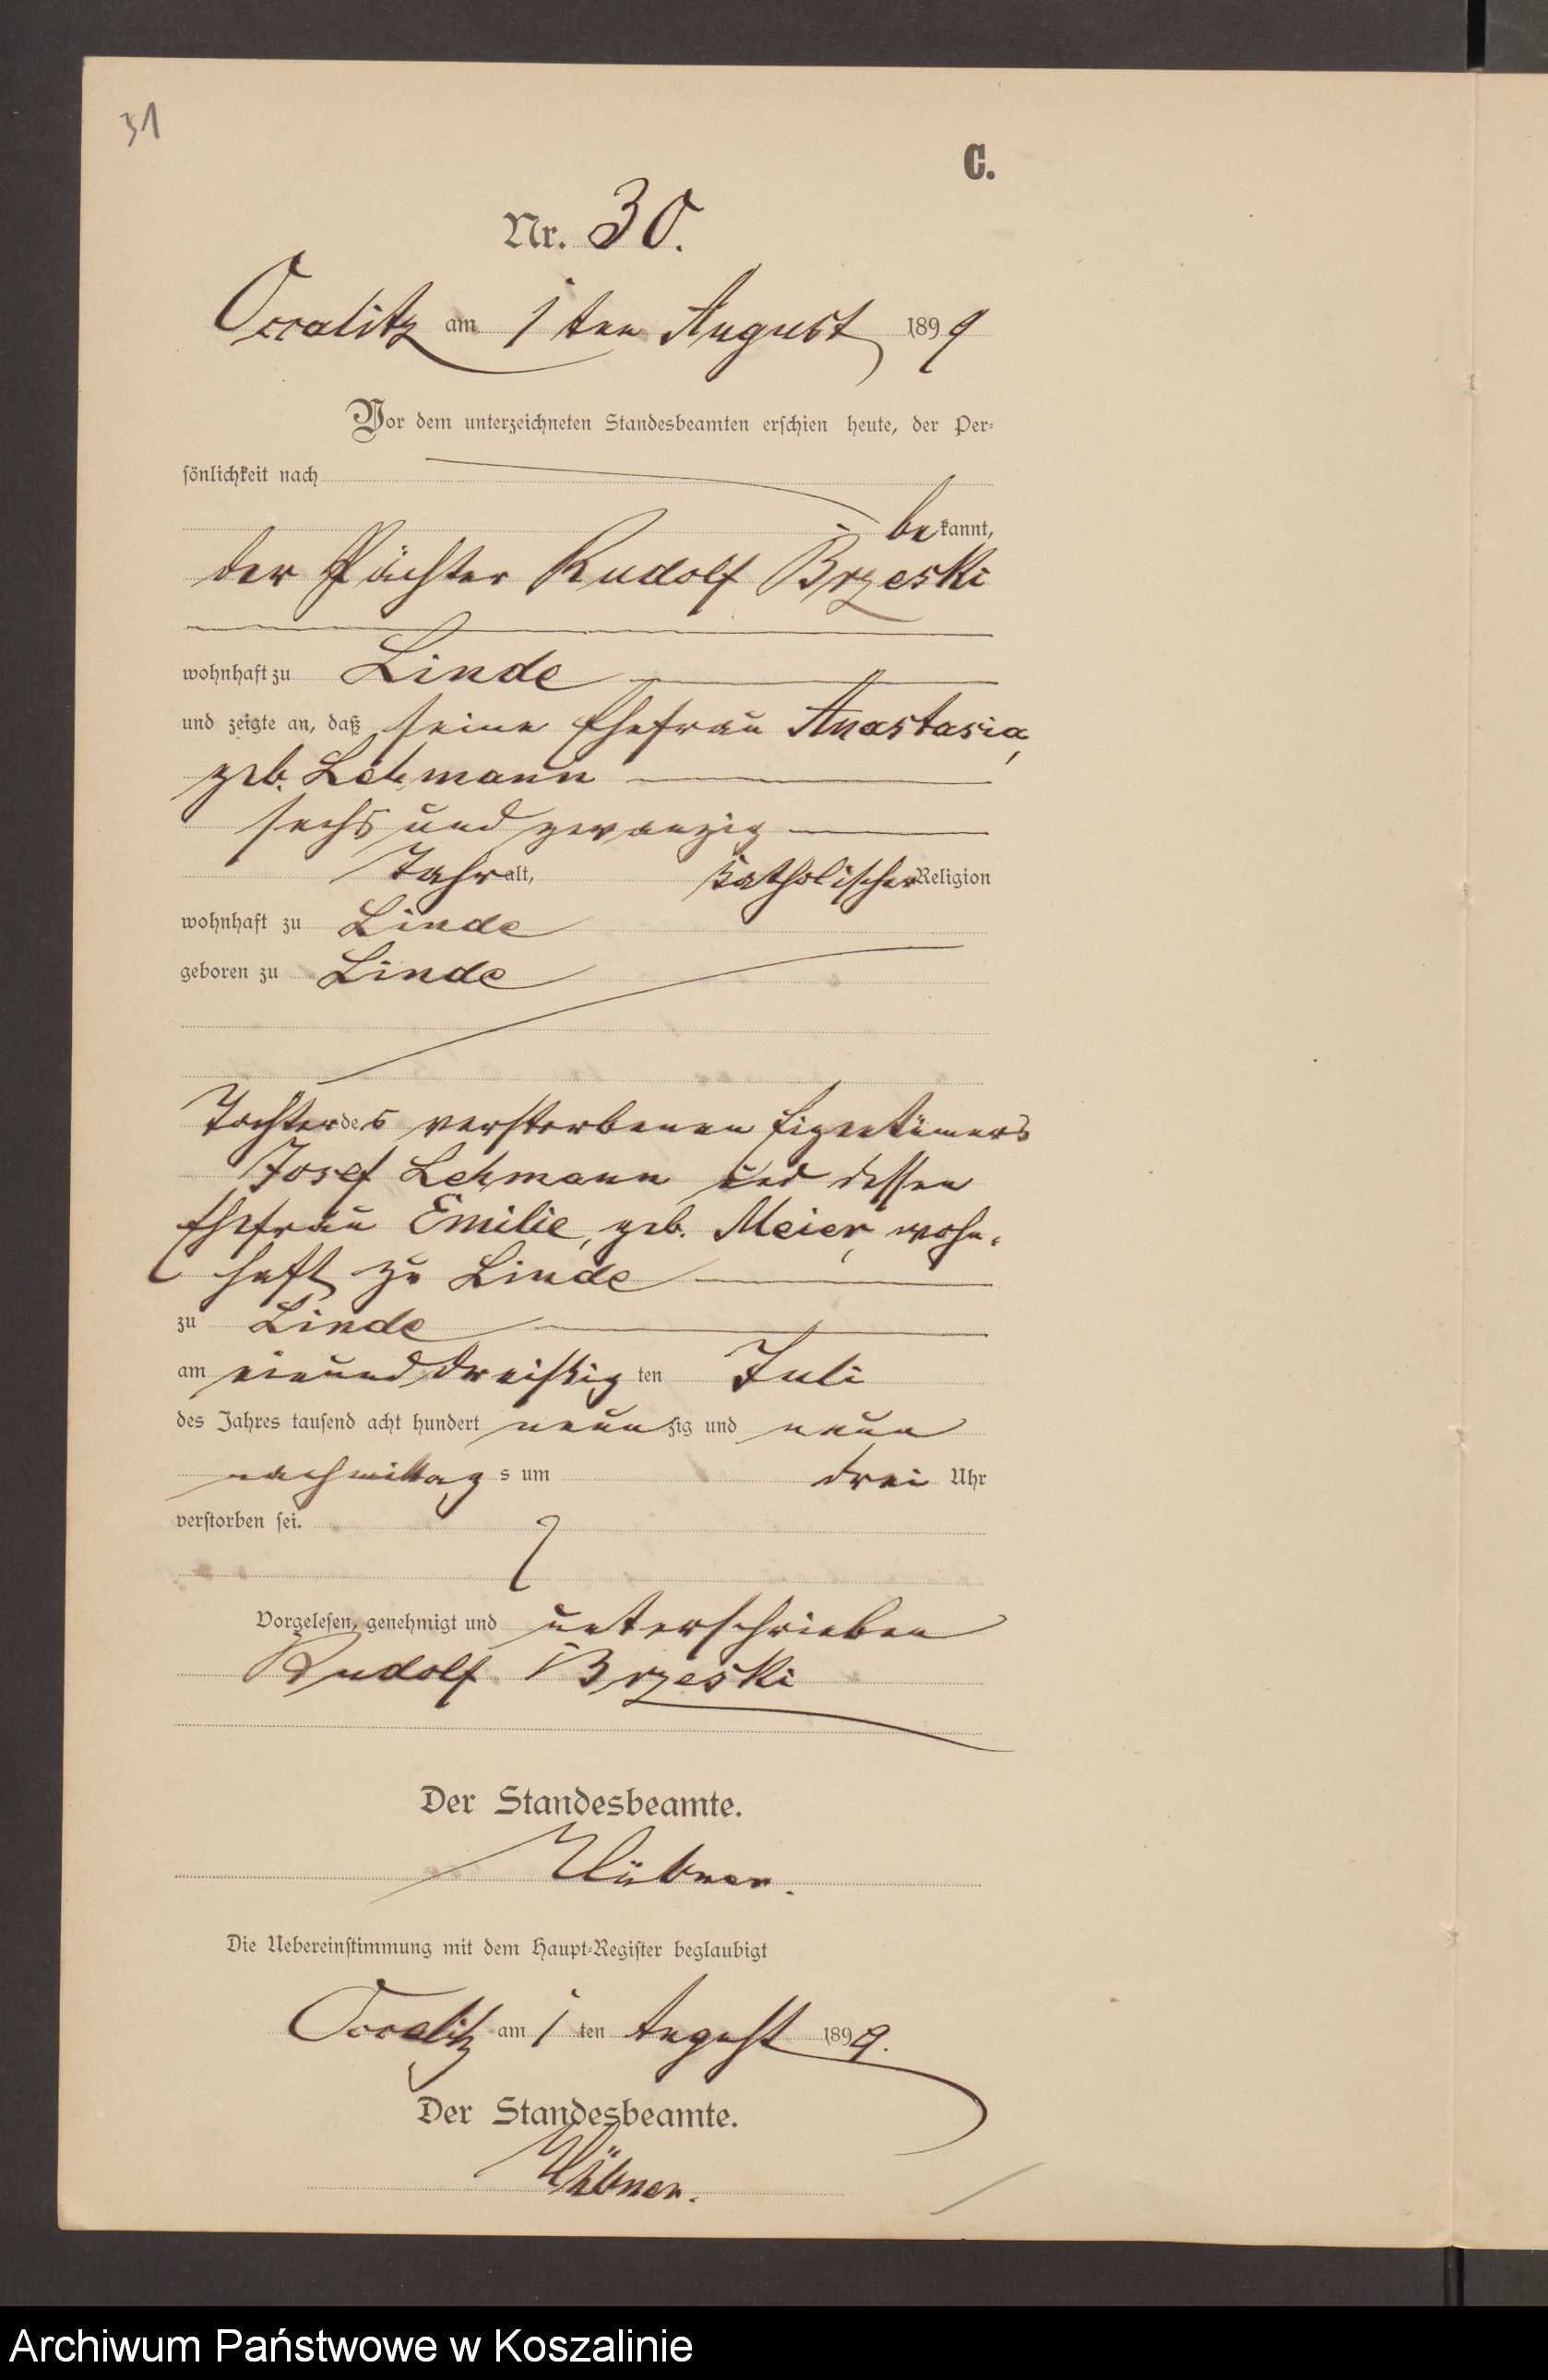 31
C.
Nr. 30.
Occalitz am 1 ten August 1899
Vor dem unterzeichneten Standesbeamten erschien heute, der Per-
sönlichkeit nach
bekannt,
der Pächter Rudolf Brzeski
wohnhaft zu Linde
und zeigte an, daß seine Ehefrau Anastasia,
geb. Lehmann
sechs und zwanzig
Jahr alt, katholischer Religion
wohnhaft zu Linde
geboren zu Linde
Tochter des verstorbenen Eigentümers
Josef Lehmann und dessen
Ehefrau Emilie, geb. Meier, wohn-
haft zu Linde
zu Linde
am einunddreißigten Juli
des Jahres tausend acht hundert neunzig und neun
nachmittags um drei Uhr
verstorben sei.
Vorgelesen, genehmigt und unterschrieben
Rudolf Brzeski
Der Standesbeamte.
Hübner.
Die Uebereinstimmung mit dem Haupt-Register beglaubigt
Occalitz am 1 ten August 1899.
Der Standesbeamte.
Hübner.
Archiwum Państwowe w Koszalinie